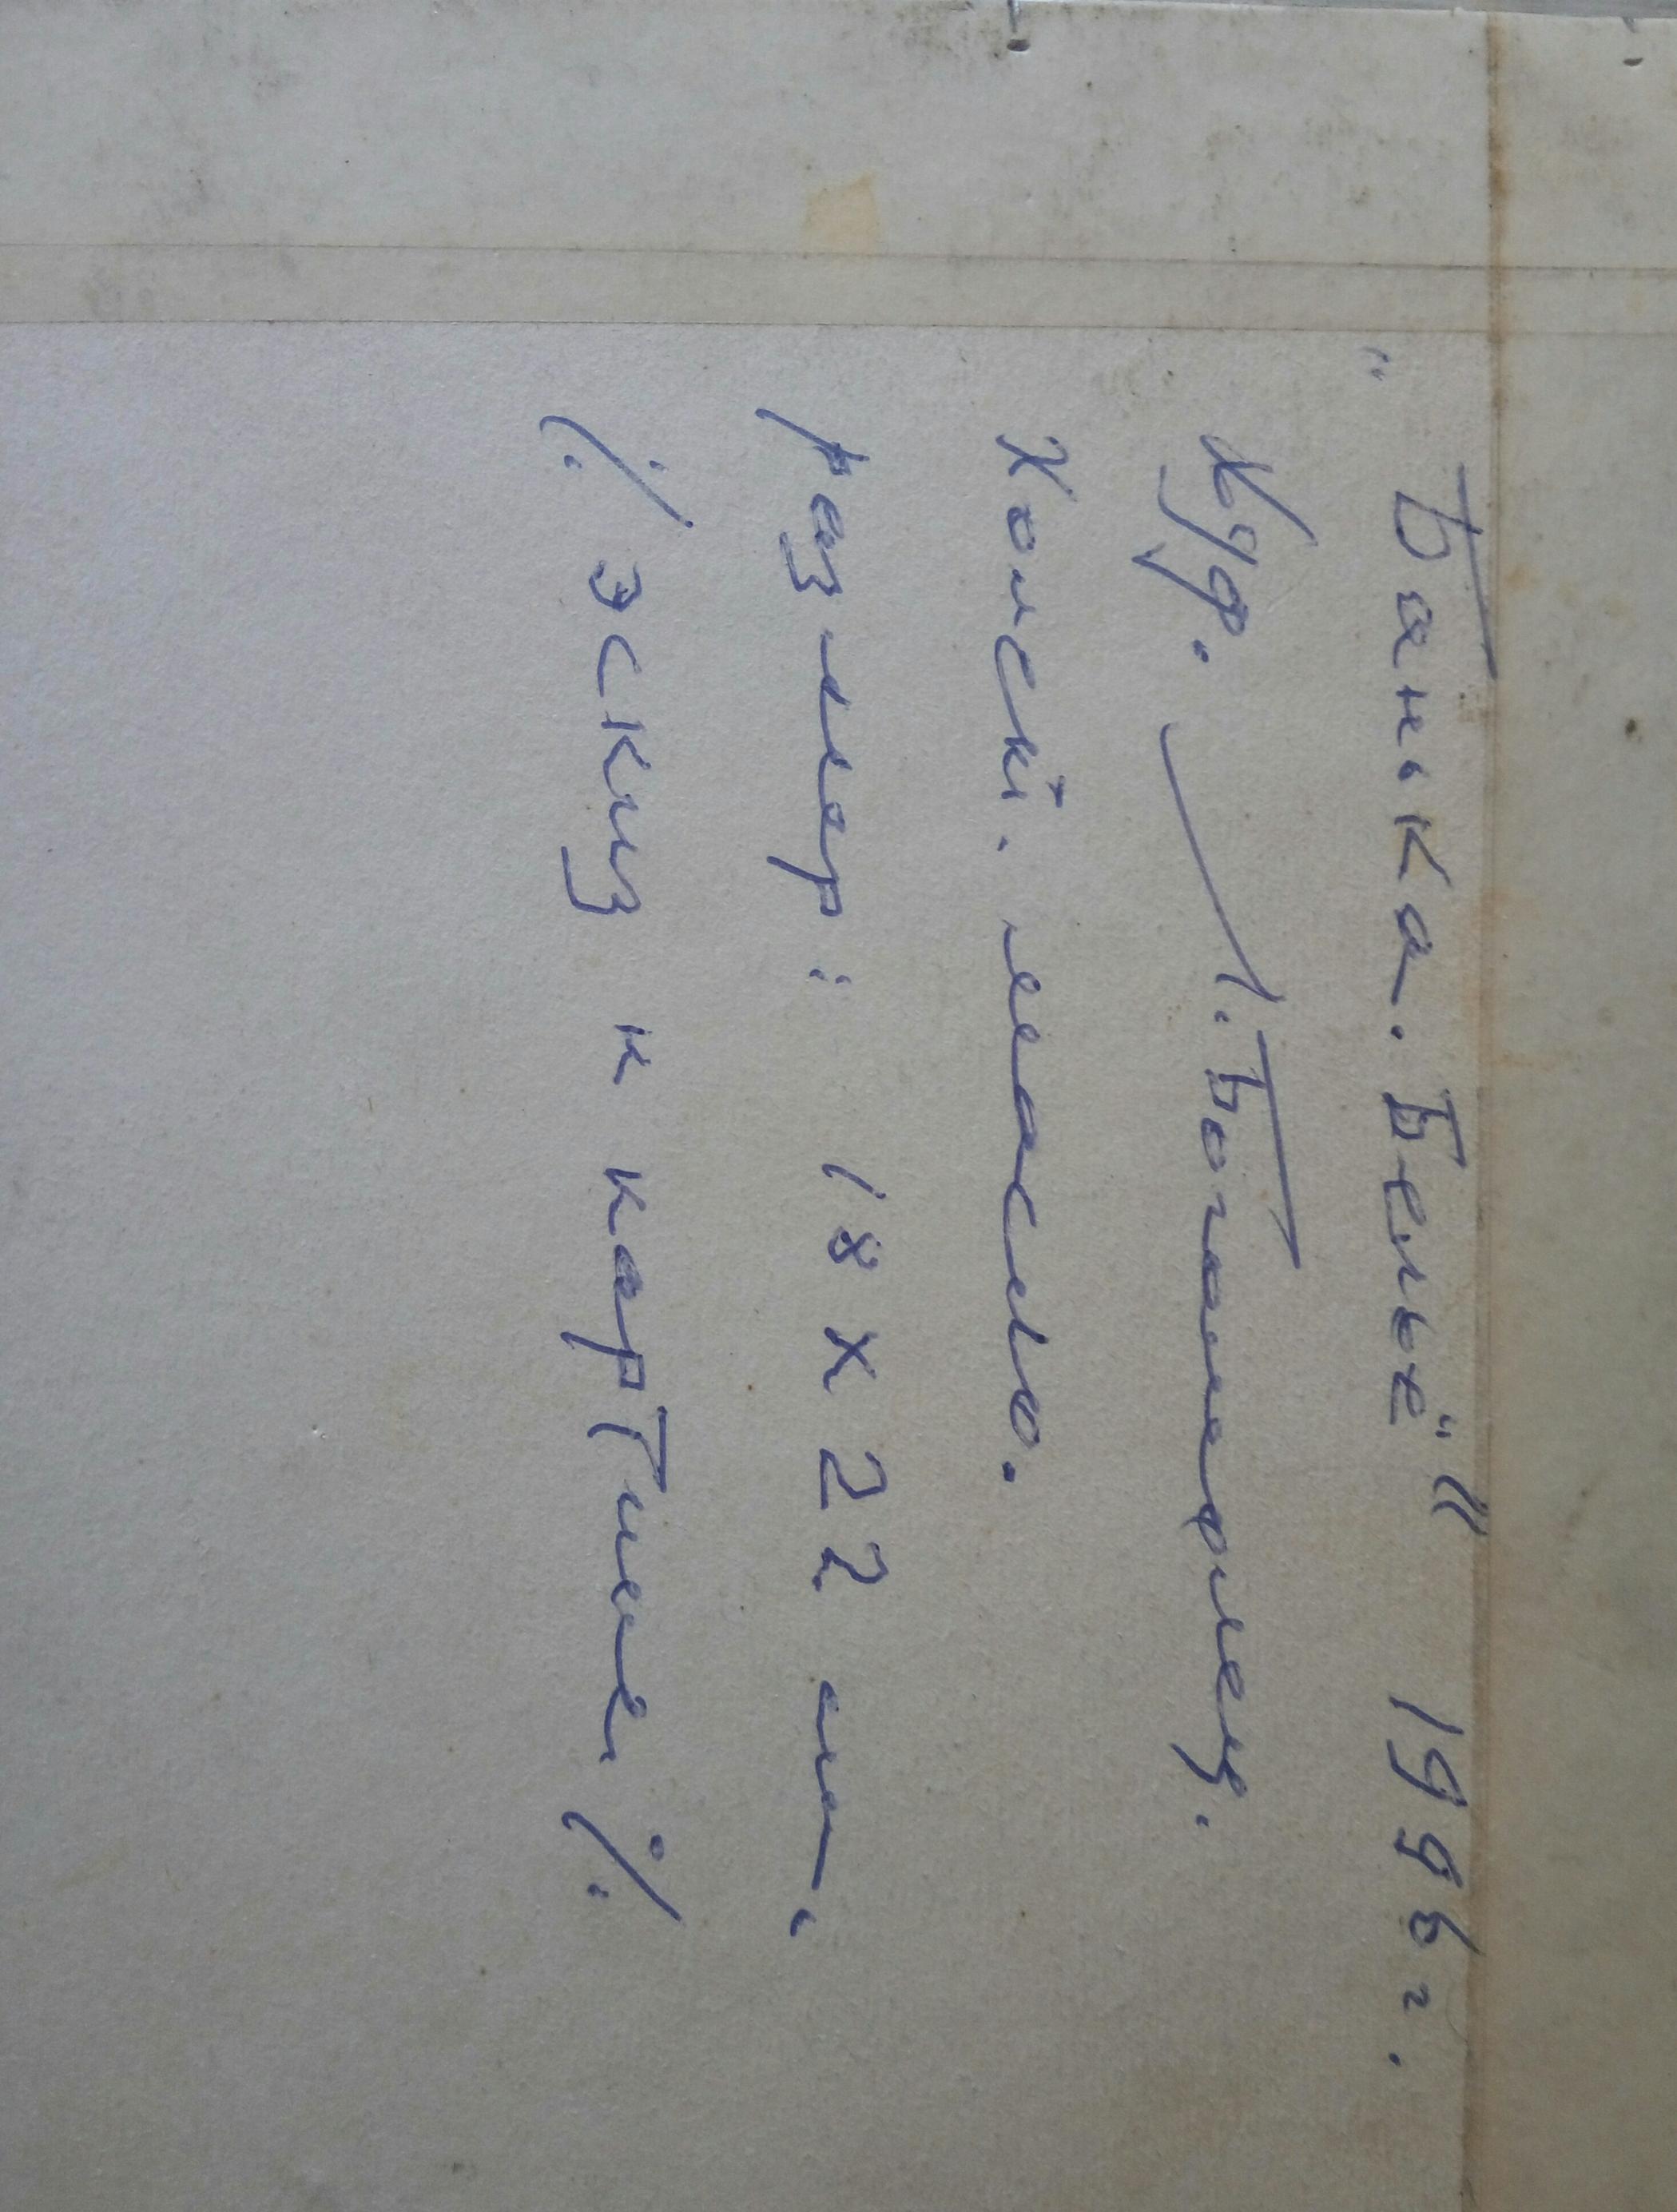 "Банька. Белье" 1996 г.
Худ.
Холст. масло.
Размер: 18 х 22 см.
/. эскиз к картине /.